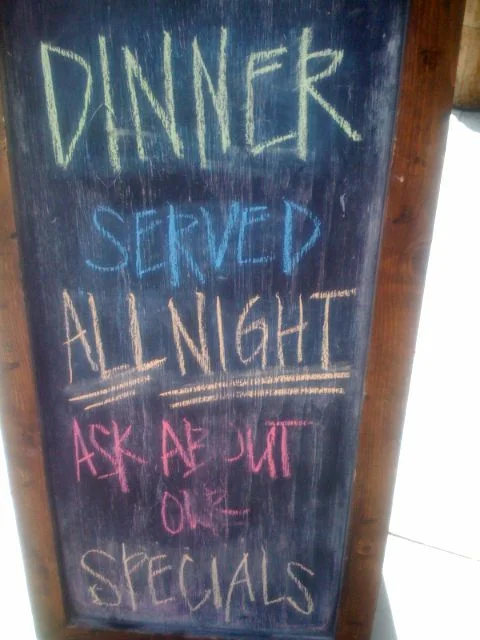 DINNER
SERVED
ALL NIGHT
ASK ABOUT
OUR
SPECIALS